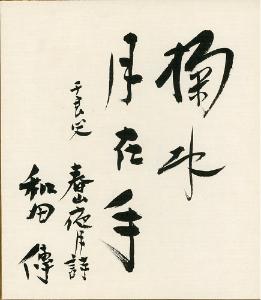 掬水
月在手
于良史
春山夜月詩
和田傳